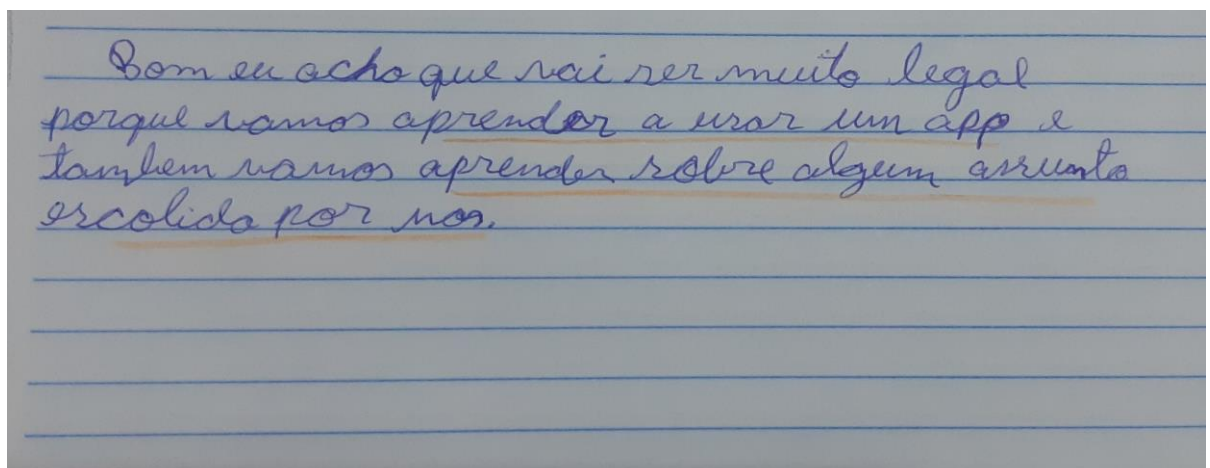 Bom eu acho que vai ser muito legal
porque vamos aprender a usar um app e
tambem vamos aprender sobre algum assunto
escolido por nos.